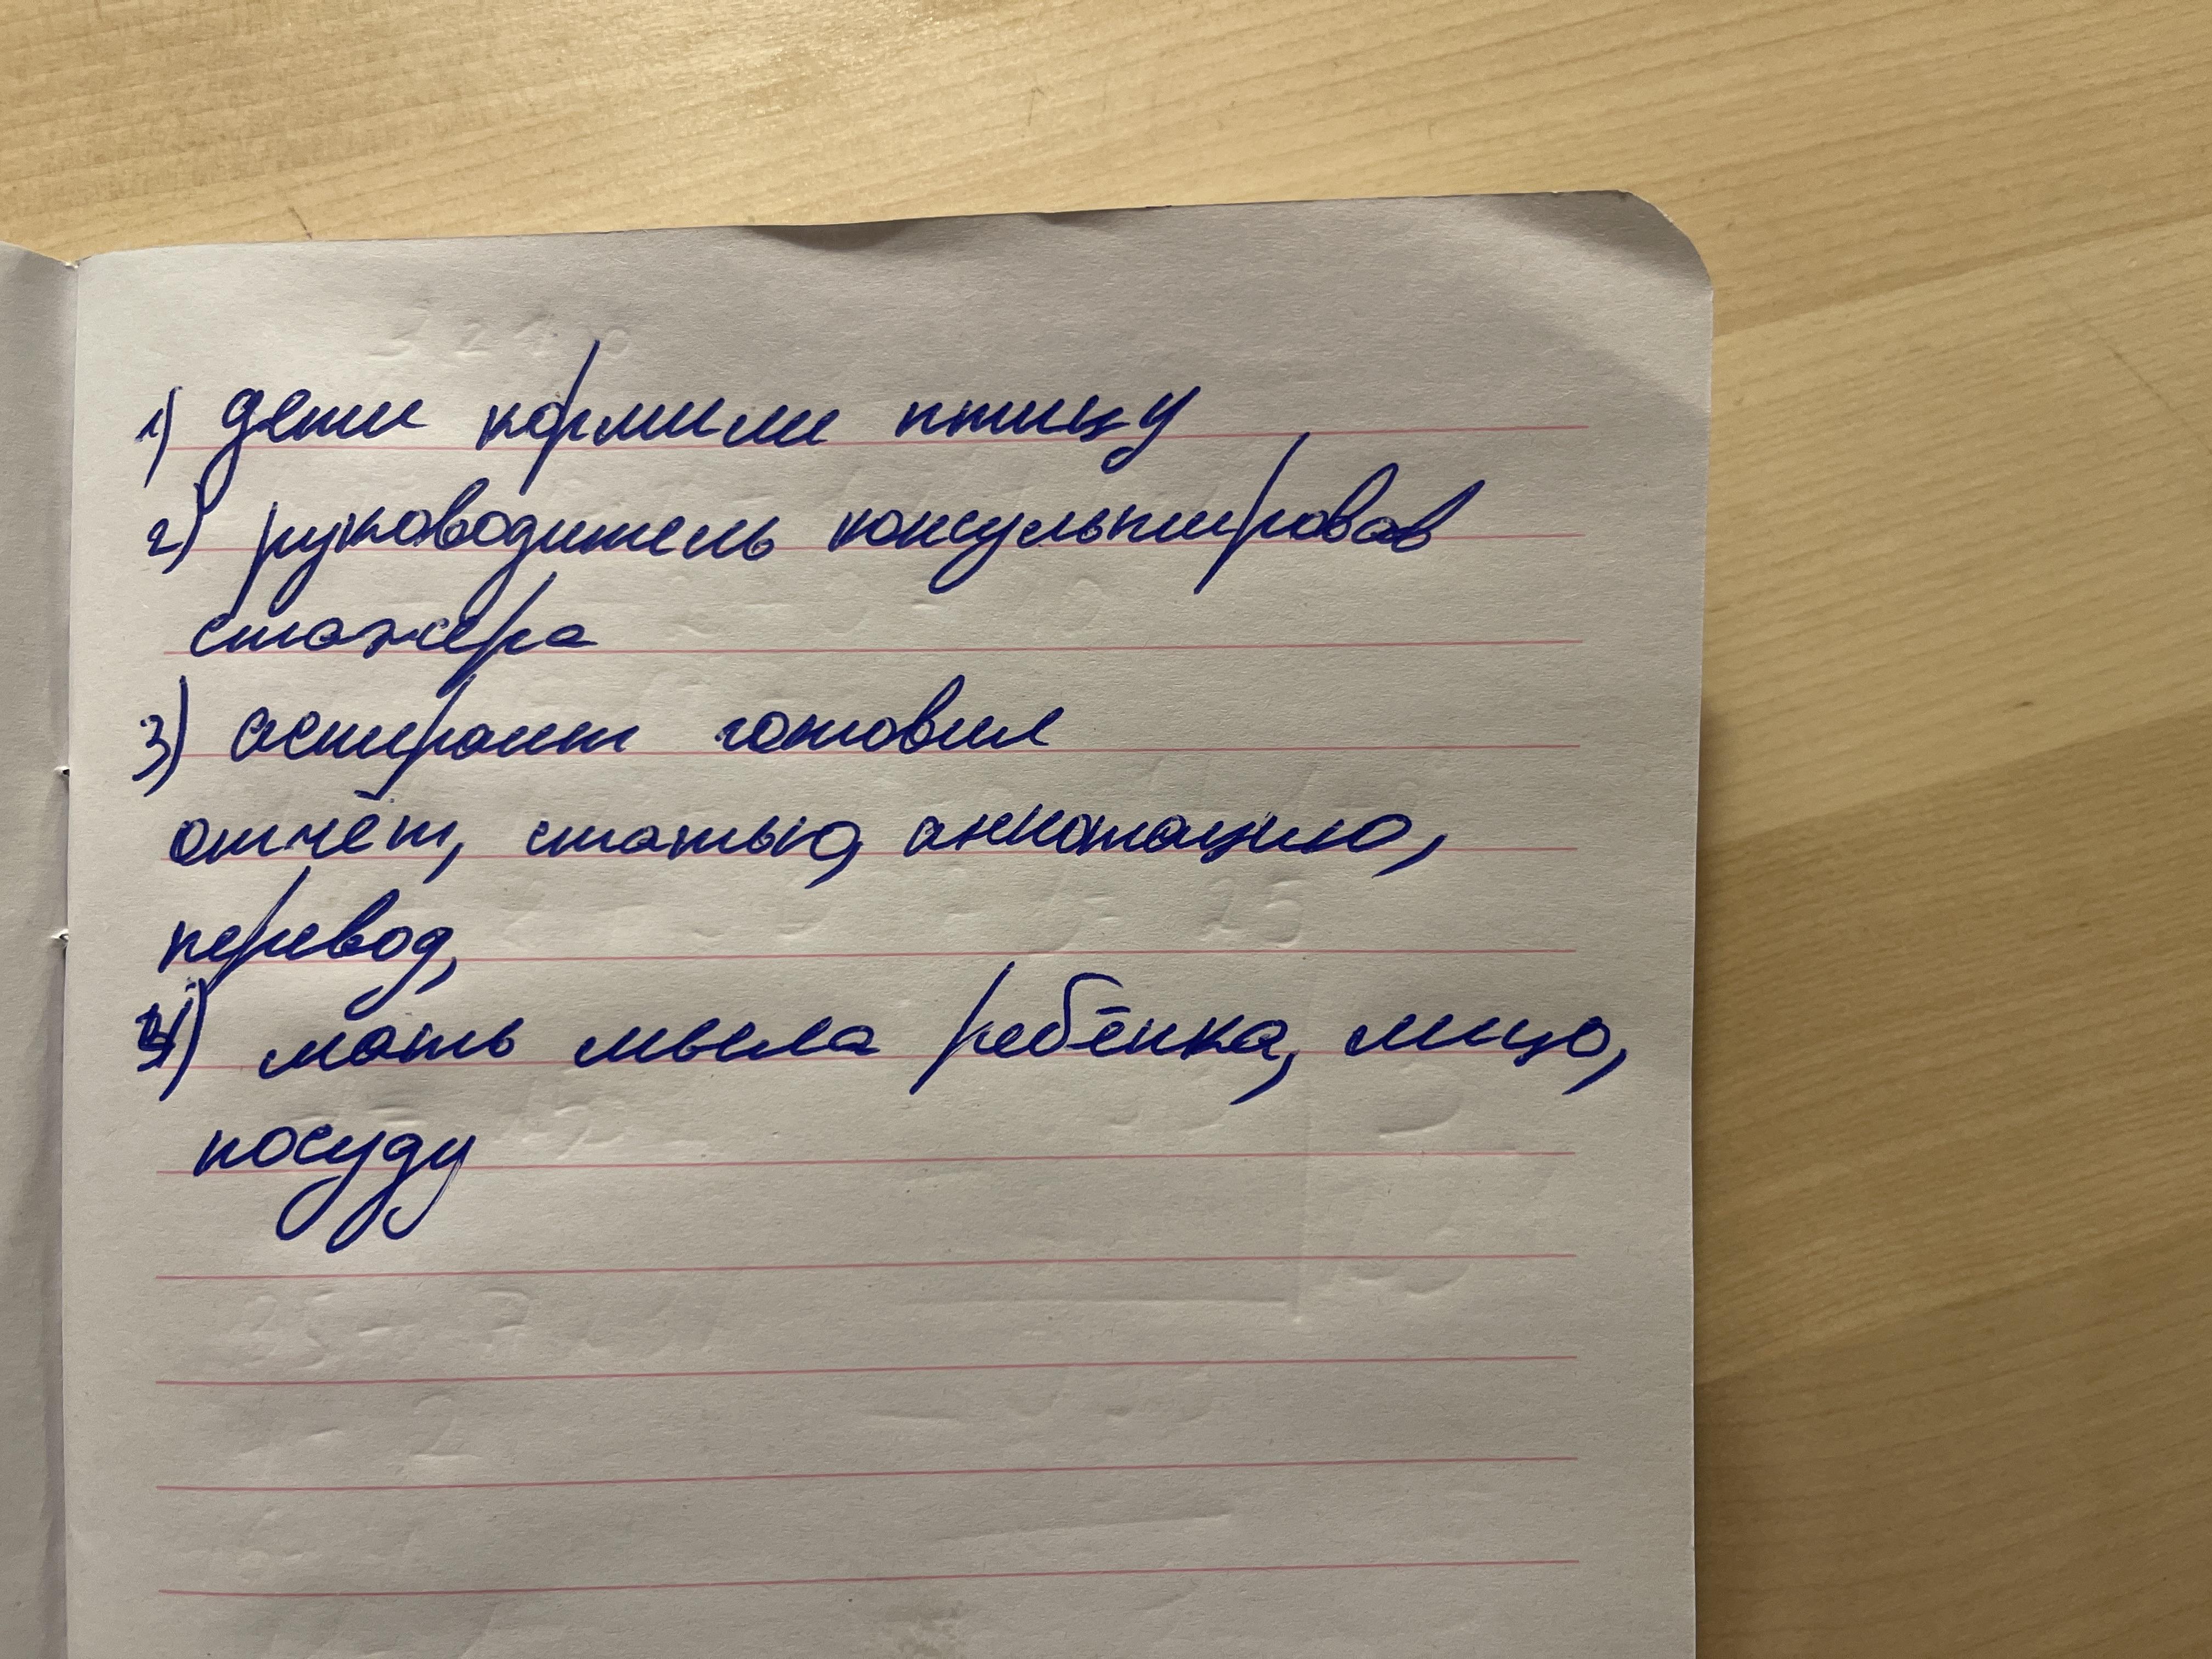 1) дети кормили птицу
2) руководитель консультировав
стажера
3) аспирант готовил
отчёт, статью, аннотацию,
перевод,
4) мать мыла ребёнка, лицо,
посуду